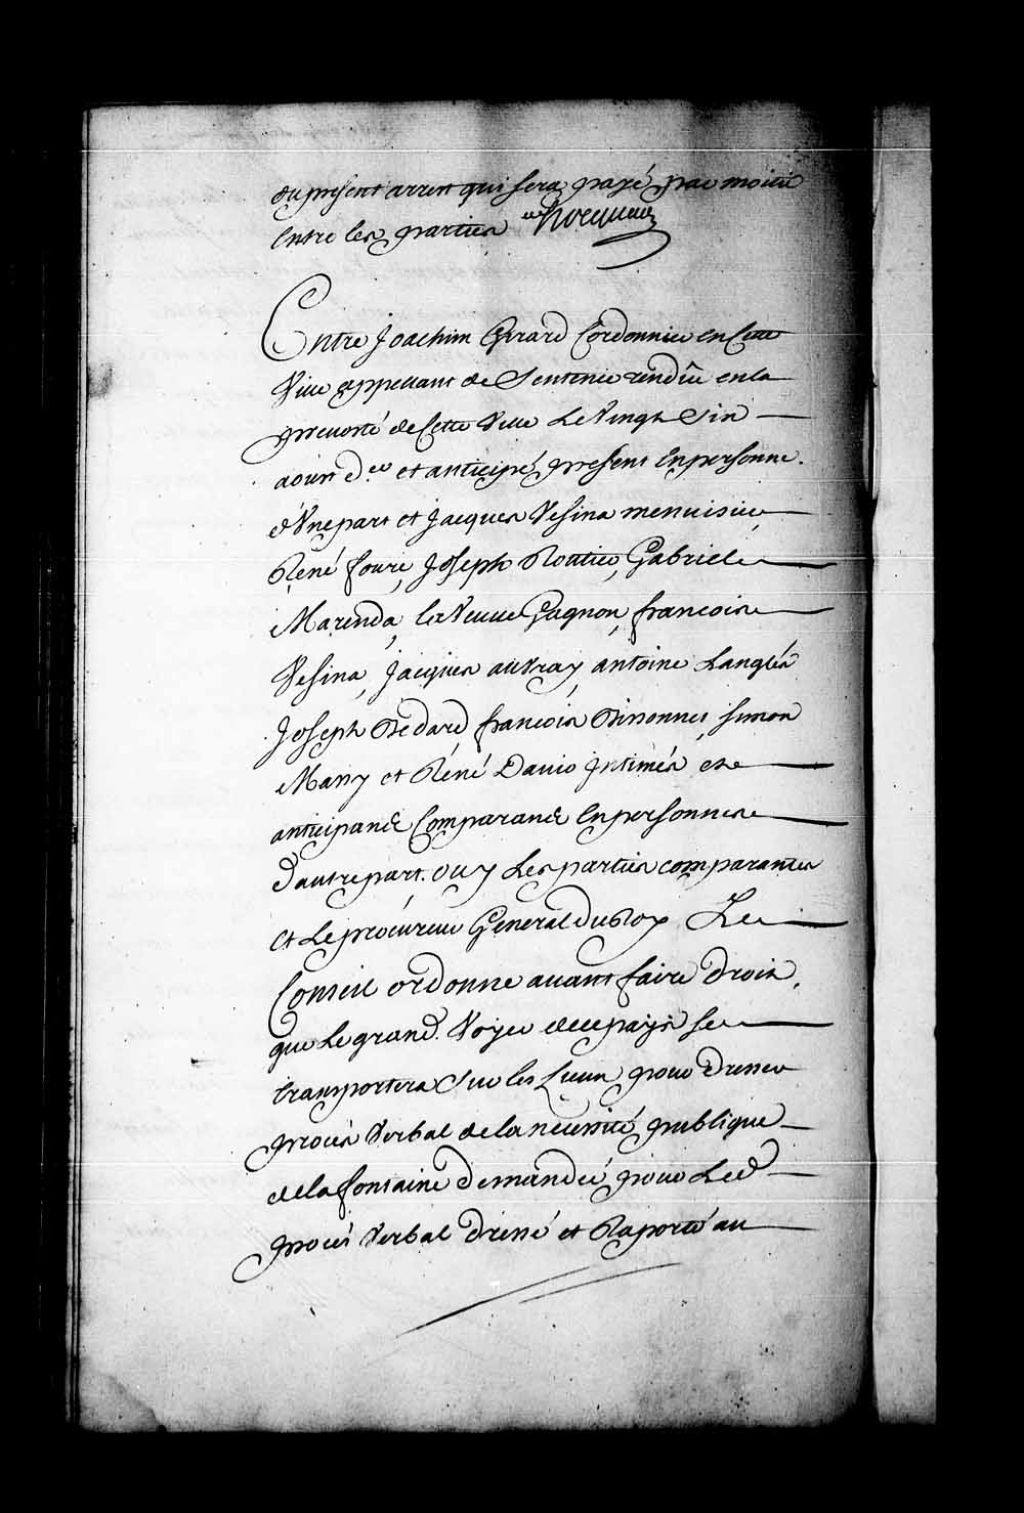 du present arrest qui sera payé par moitié
Entre les parties Hocquart
Entre Joachim Girard Cordonnier en Cette
Ville appellant de Sentence rendüe en la
prevosté de Cette Ville Le Vingt Six
aoust d.er et anticipé present En personne.
d'Une part et Jacques Vesina menuisier
René fouré, Joseph Routier, Gabriel
Marenda, la Veuve Gagnon, francois
Vesina, Jacques auvray, antoine Langlés
Joseph Bedard, francois Bissonnet, simon
Massy et Réné David Intimés et
anticipand Comparand En personnes
d'autre part. ouy Les parties comparantes
et Le procureur General du Roy Le
Conseil ordonne avant faire droit,
que Le grand Voyer de ce pays se
transportera Sur les Lieux pour dresser
procés Verbal de la necessité publique
de la fontaine demandée pour Led
procés Verbal dressé et Raporté au